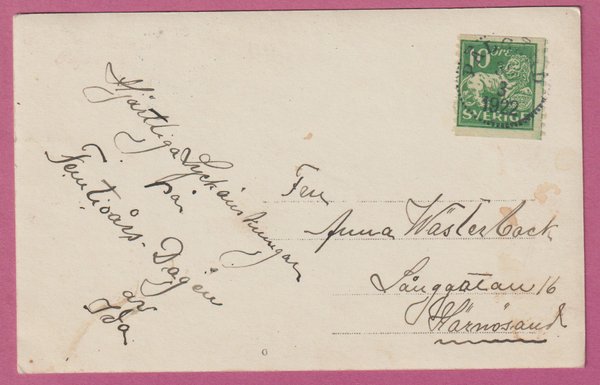 Hjärtliga Lyckönskningar
på
Femtioårs-Dagen
av
Ida
10 ÖRE
3
1922
SVERIGE
Fru
Anna Wästerback
Långgatan 16
Härnösand